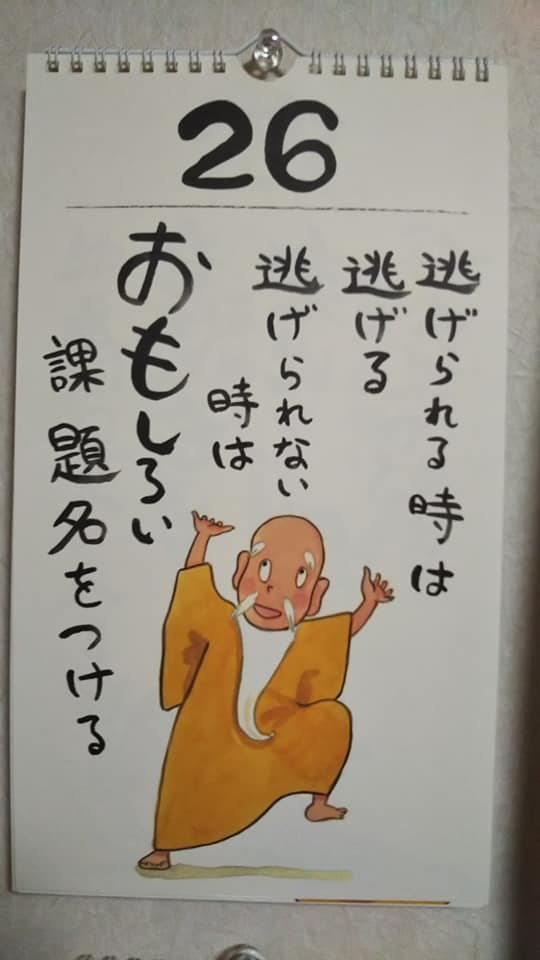 26
逃げられる時は
逃げる
逃げられない
時は
おもしろい
課題名をつける